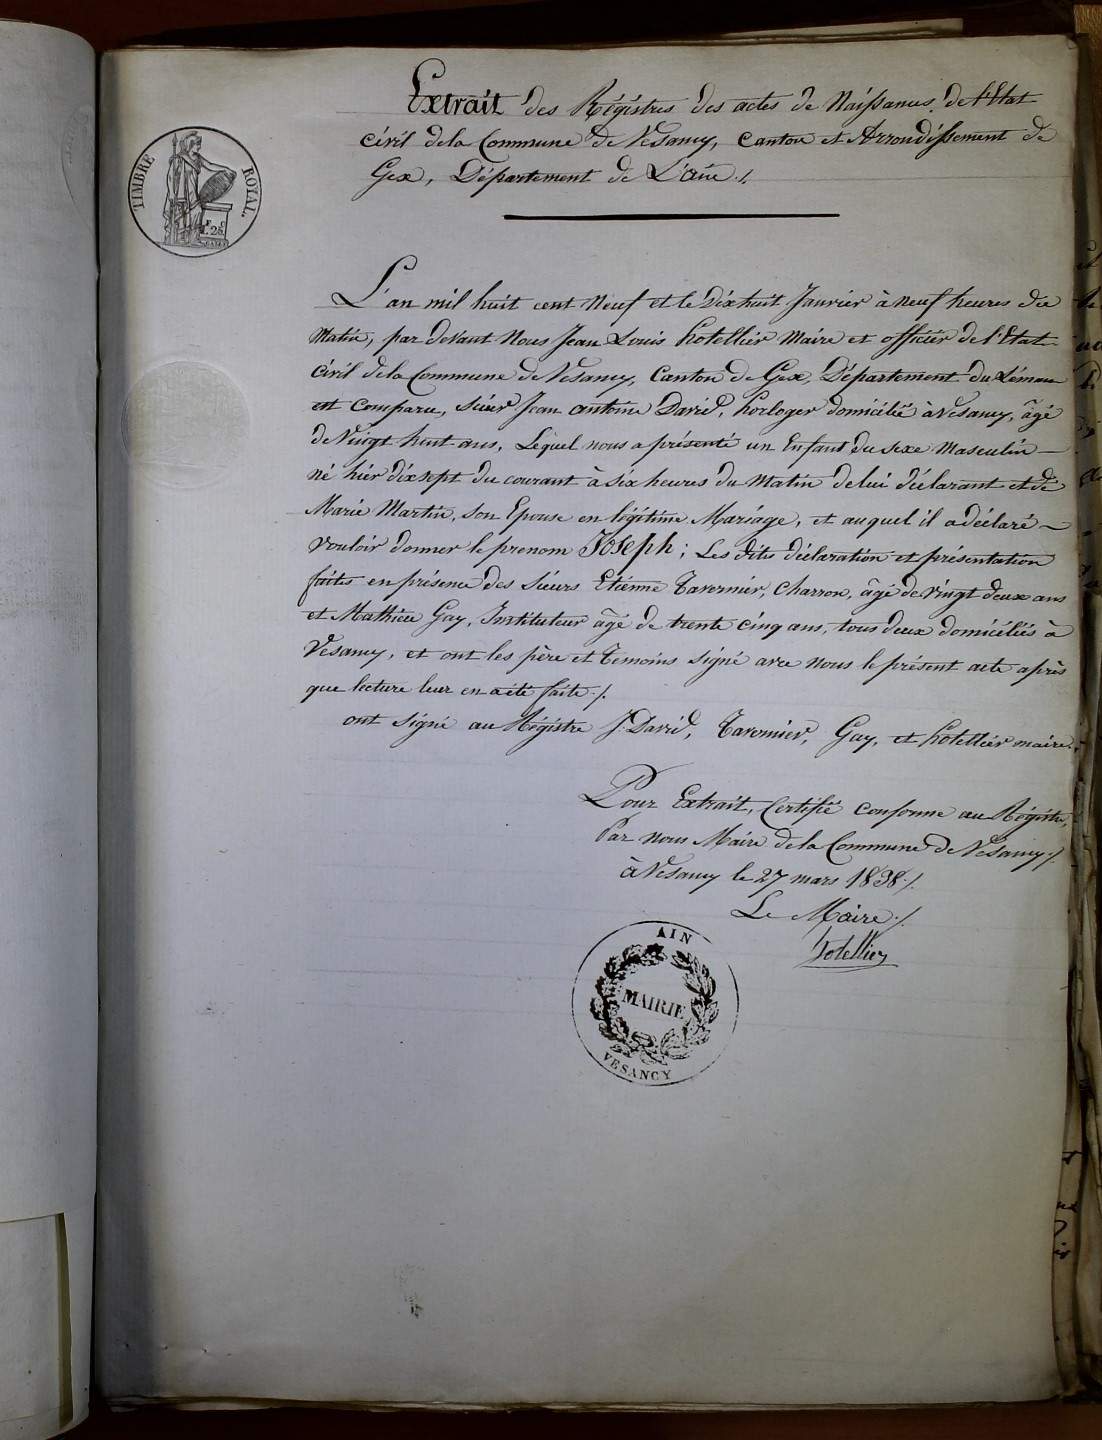 Extrait des Régistres des actes de Naissances de l'Etat
civil de la Commune de Vesancy, canton et Arrondissement de
Gex, Département de L'ain ./.
TIMBRE ROYAL.
L'an mil huit cent Neuf et le Dixhuit Janvier à neuf heures du
Matin, par devant Nous Jean Louis hotellier Maire et officier de l'Etat
civil de la Commune de Vesancy, Canton de Gex, Département du Léman
est comparu, sieur Jean antoine David, horloger domicilié à Vesancy, âgé
de Vingt huit ans, Lequel nous a présenté un Enfant du sexe Masculin —
né hier dixsept du courant à six heures du Matin de lui déclarant et de
Marie Martin, son Epouse en légitime Mariage, et auquel il a déclaré —
vouloir donner le prenom Joseph ; Les dites déclaration et présentation
faites en présence des sieurs Etienne Tavernier, Charron, âgé de vingt deux ans
et Mathieu Gay, Instituteur âgé de trente cinq ans, tous deux domiciliés à
Vesancy, et ont les père et Temoins signé avec nous le présent acte après
que lecture leur en a été faite ./.
ont signé au Régistre J. David, Tavernier, Gay, et hotellier maire.
Pour Extrait, Certifié conforme au Régistre,
Par nous Maire de la Commune de Vesancy ./.
à Vesancy le 27 mars 1838 ./.
Le Maire ./.
hotellier
AIN
MAIRIE
VESANCY